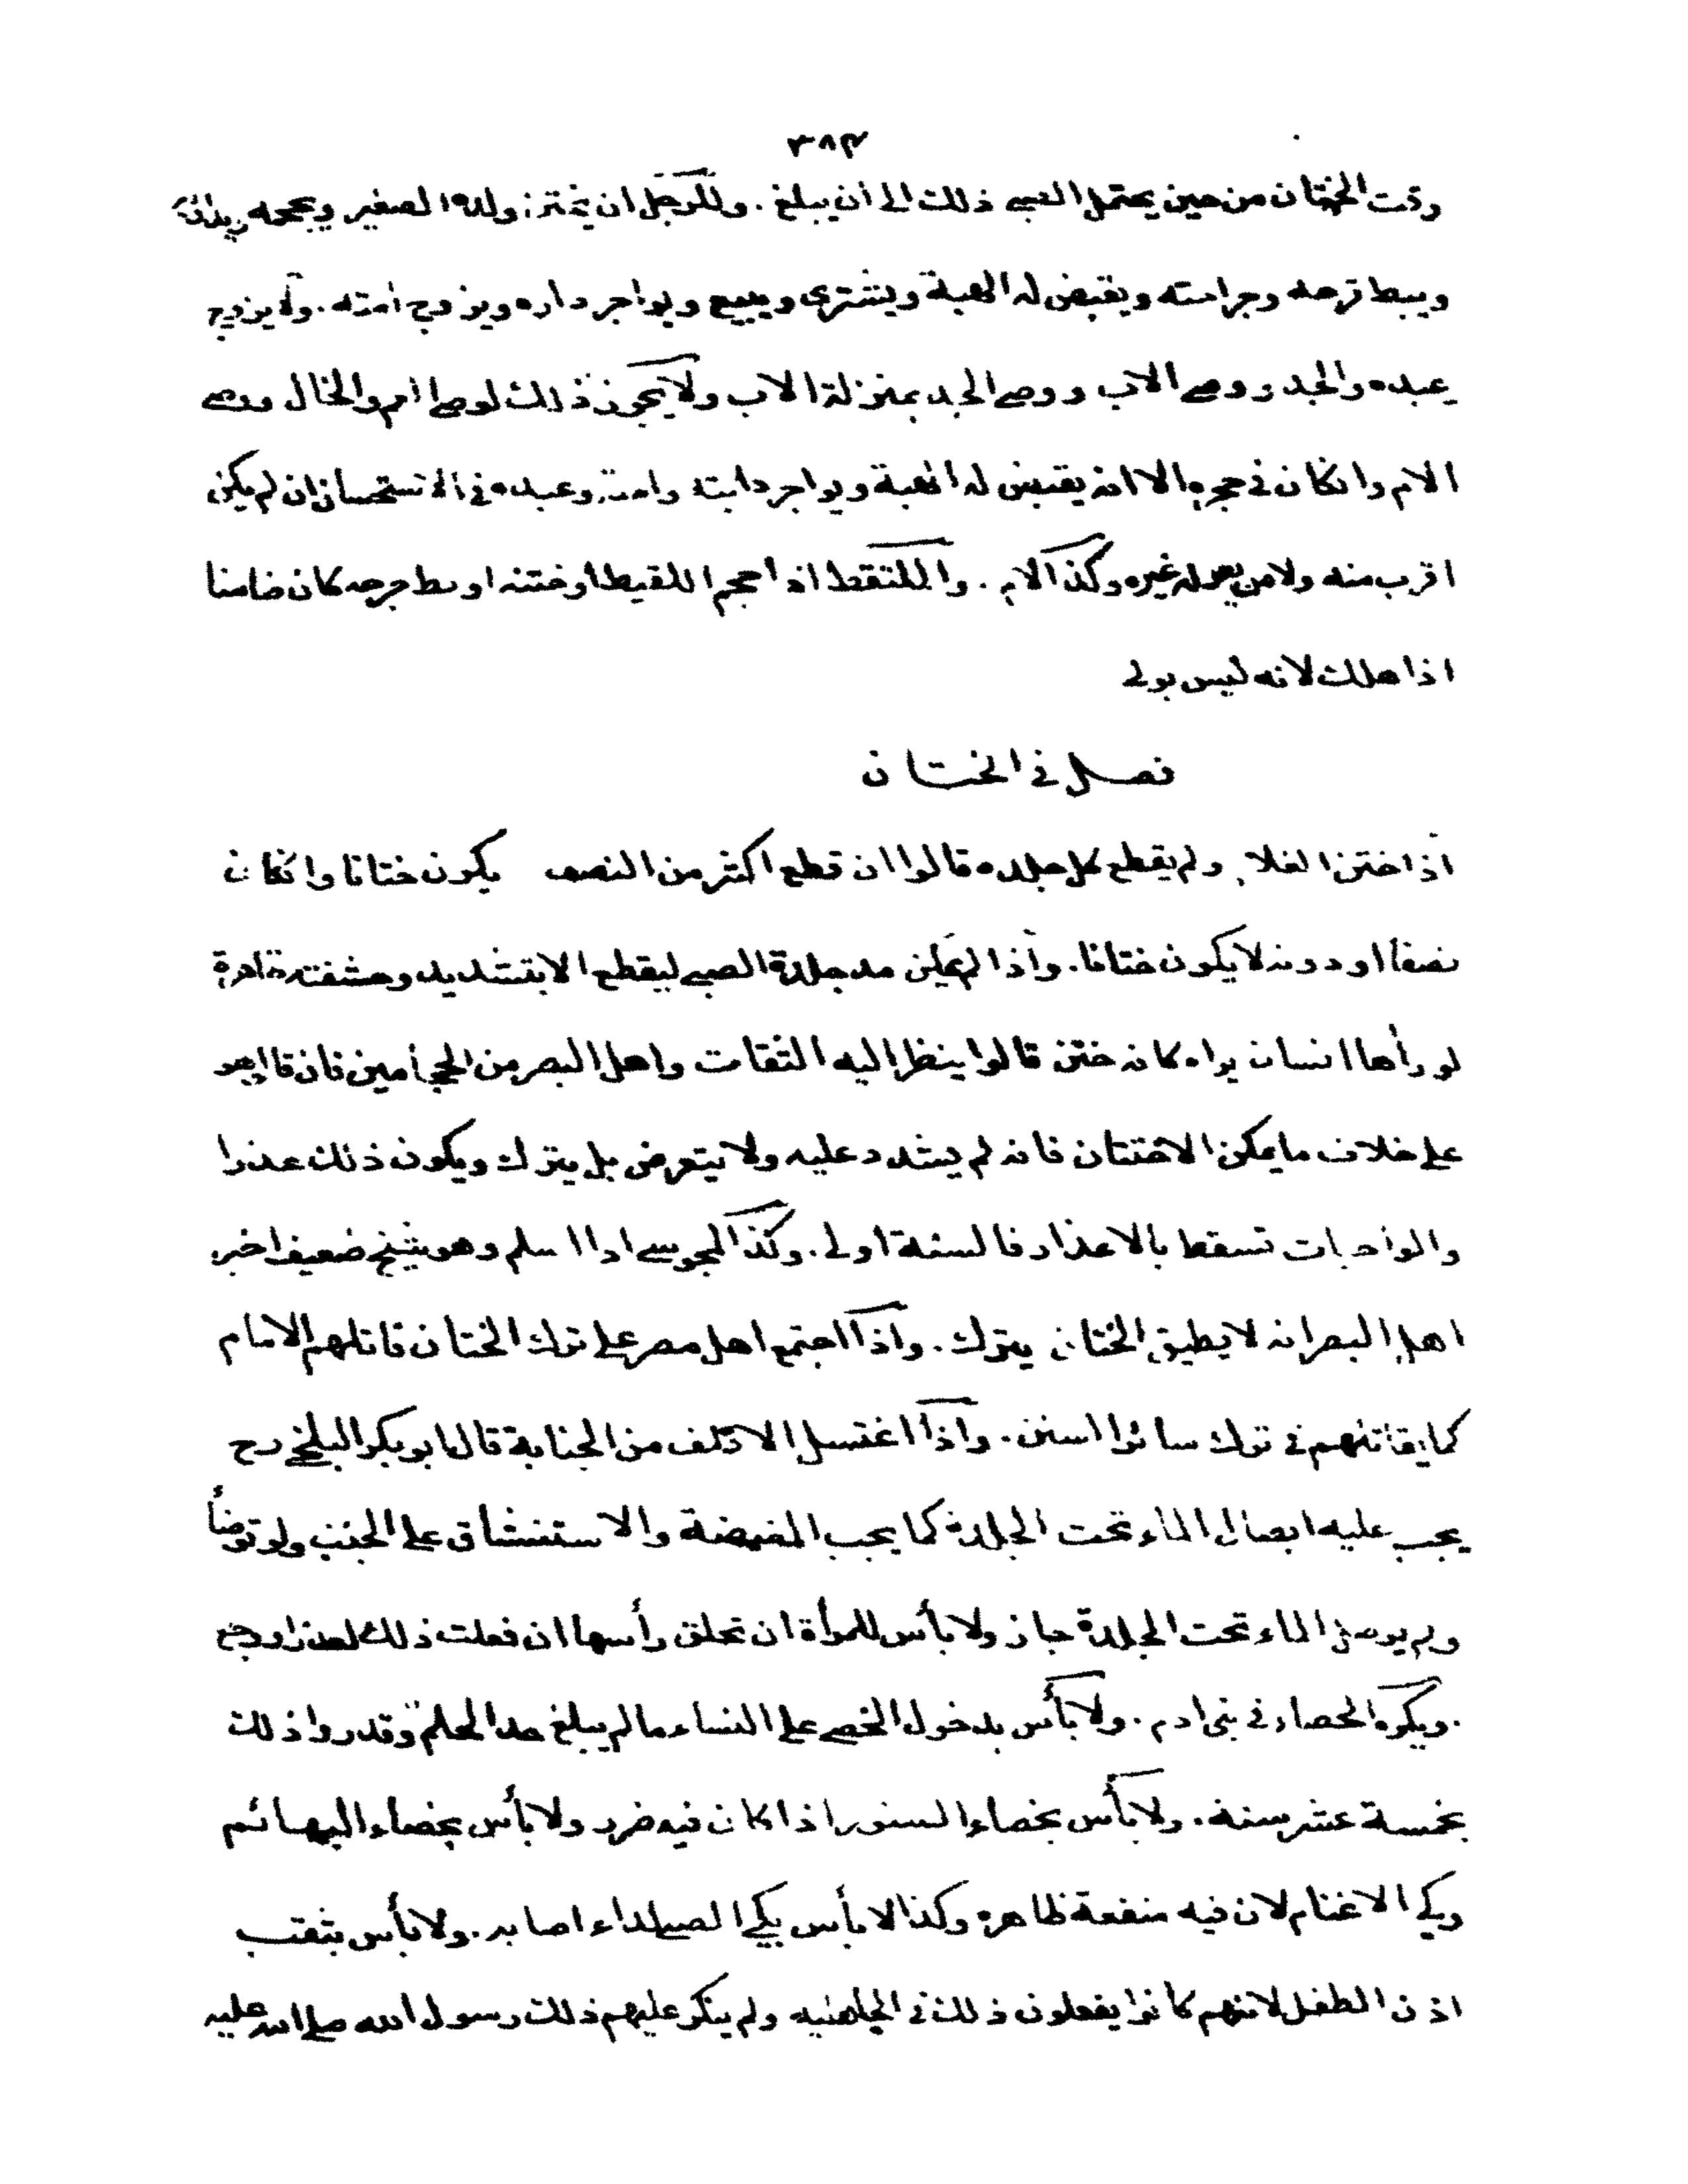 ٣٨٣
وقت الختان من حين يحتمل الصبى ذلك الى أن يبلغ . وللرجل ان يختن ولده الصغير ويحجمه ويداويه
ويبط قرحه وجراحته ويقبض له الهبة ويشترى ويبيع ويواجر داره ويزوج امته . ولا يزوج
عبده والجد ووصى الاب ووصى الجد بمنزلة الاب ولا يجوز ذلك لوصى ام والخال ووصى
الام وانكان فى حجره الا انه يقبض له الهبة ويواجر دابته وامته وعبده فى الاستحسان ان لم يكن
اقرب منه ولا من يعوله غيره وكذا الام . والملتقط اذا حجم اللقيط او ختنه او بط جرحه كان ضامنا
اذا هلك لانه ليس بولى
فصل فى الختان
اذا ختن الغلام ولم يقطع كل جلده قالوا ان قطع اكثر من النصف يكون ختانا وانكان
نصفا او دونه لا يكون ختانا . واذا لم يمكن مد جلدة الصبى ليقطع الا بتشديد وحشفته ظاهرة
لو رأها انسان يراه كانه ختن قالوا ينظر اليه الثقات واهل البصر من الحجامين فان قالوا هو
على خلاف ما يمكن الاختتان فانه لم يشدد عليه ولا يتعرض بل يترك ويكون ذلك عذرا
والواجبات تسقط بالاعذار فالسنة اولى . وكذا المجوسى اذا اسلم وهو شيخ ضعيف اخبر
اهل البصر انه لا يطيق الختان يترك . واذا اجتمع اهل مصر على ترك الختان قاتلهم الامام
كما يقاتلهم فى ترك سائر السنن . واذا اغتسل الاقلف من الجنابة قال ابو بكر البلخى رح
يجب عليه ايصال الماء تحت الجلدة كما يجب المضمضة والاستنشاق على الجنب ولو توضأ
ولم يوصل الماء تحت الجلدة جاز ولا بأس للمرأة ان تحلق رأسها ان فعلت ذلك لعذر او وجع
. ويكره الخصاء فى بنى ادم . ولا بأس بدخول الخصى على النساء ما لم يبلغ حد الحلم وقدروا ذلك
بخمسة عشر سنة . ولا بأس بخصاء السنور اذا كان فيه ضرر ولا بأس بخصاء البهائم
وكى الاغنام لان فيه منفعة ظاهرة وكذا لا بأس بكى الصبى لداء اصابه . ولا بأس بثقب
اذن الطفل لانهم كانوا يفعلون ذلك فى الجاهلية ولم ينكر عليهم ذلك رسول الله صلى الله عليه